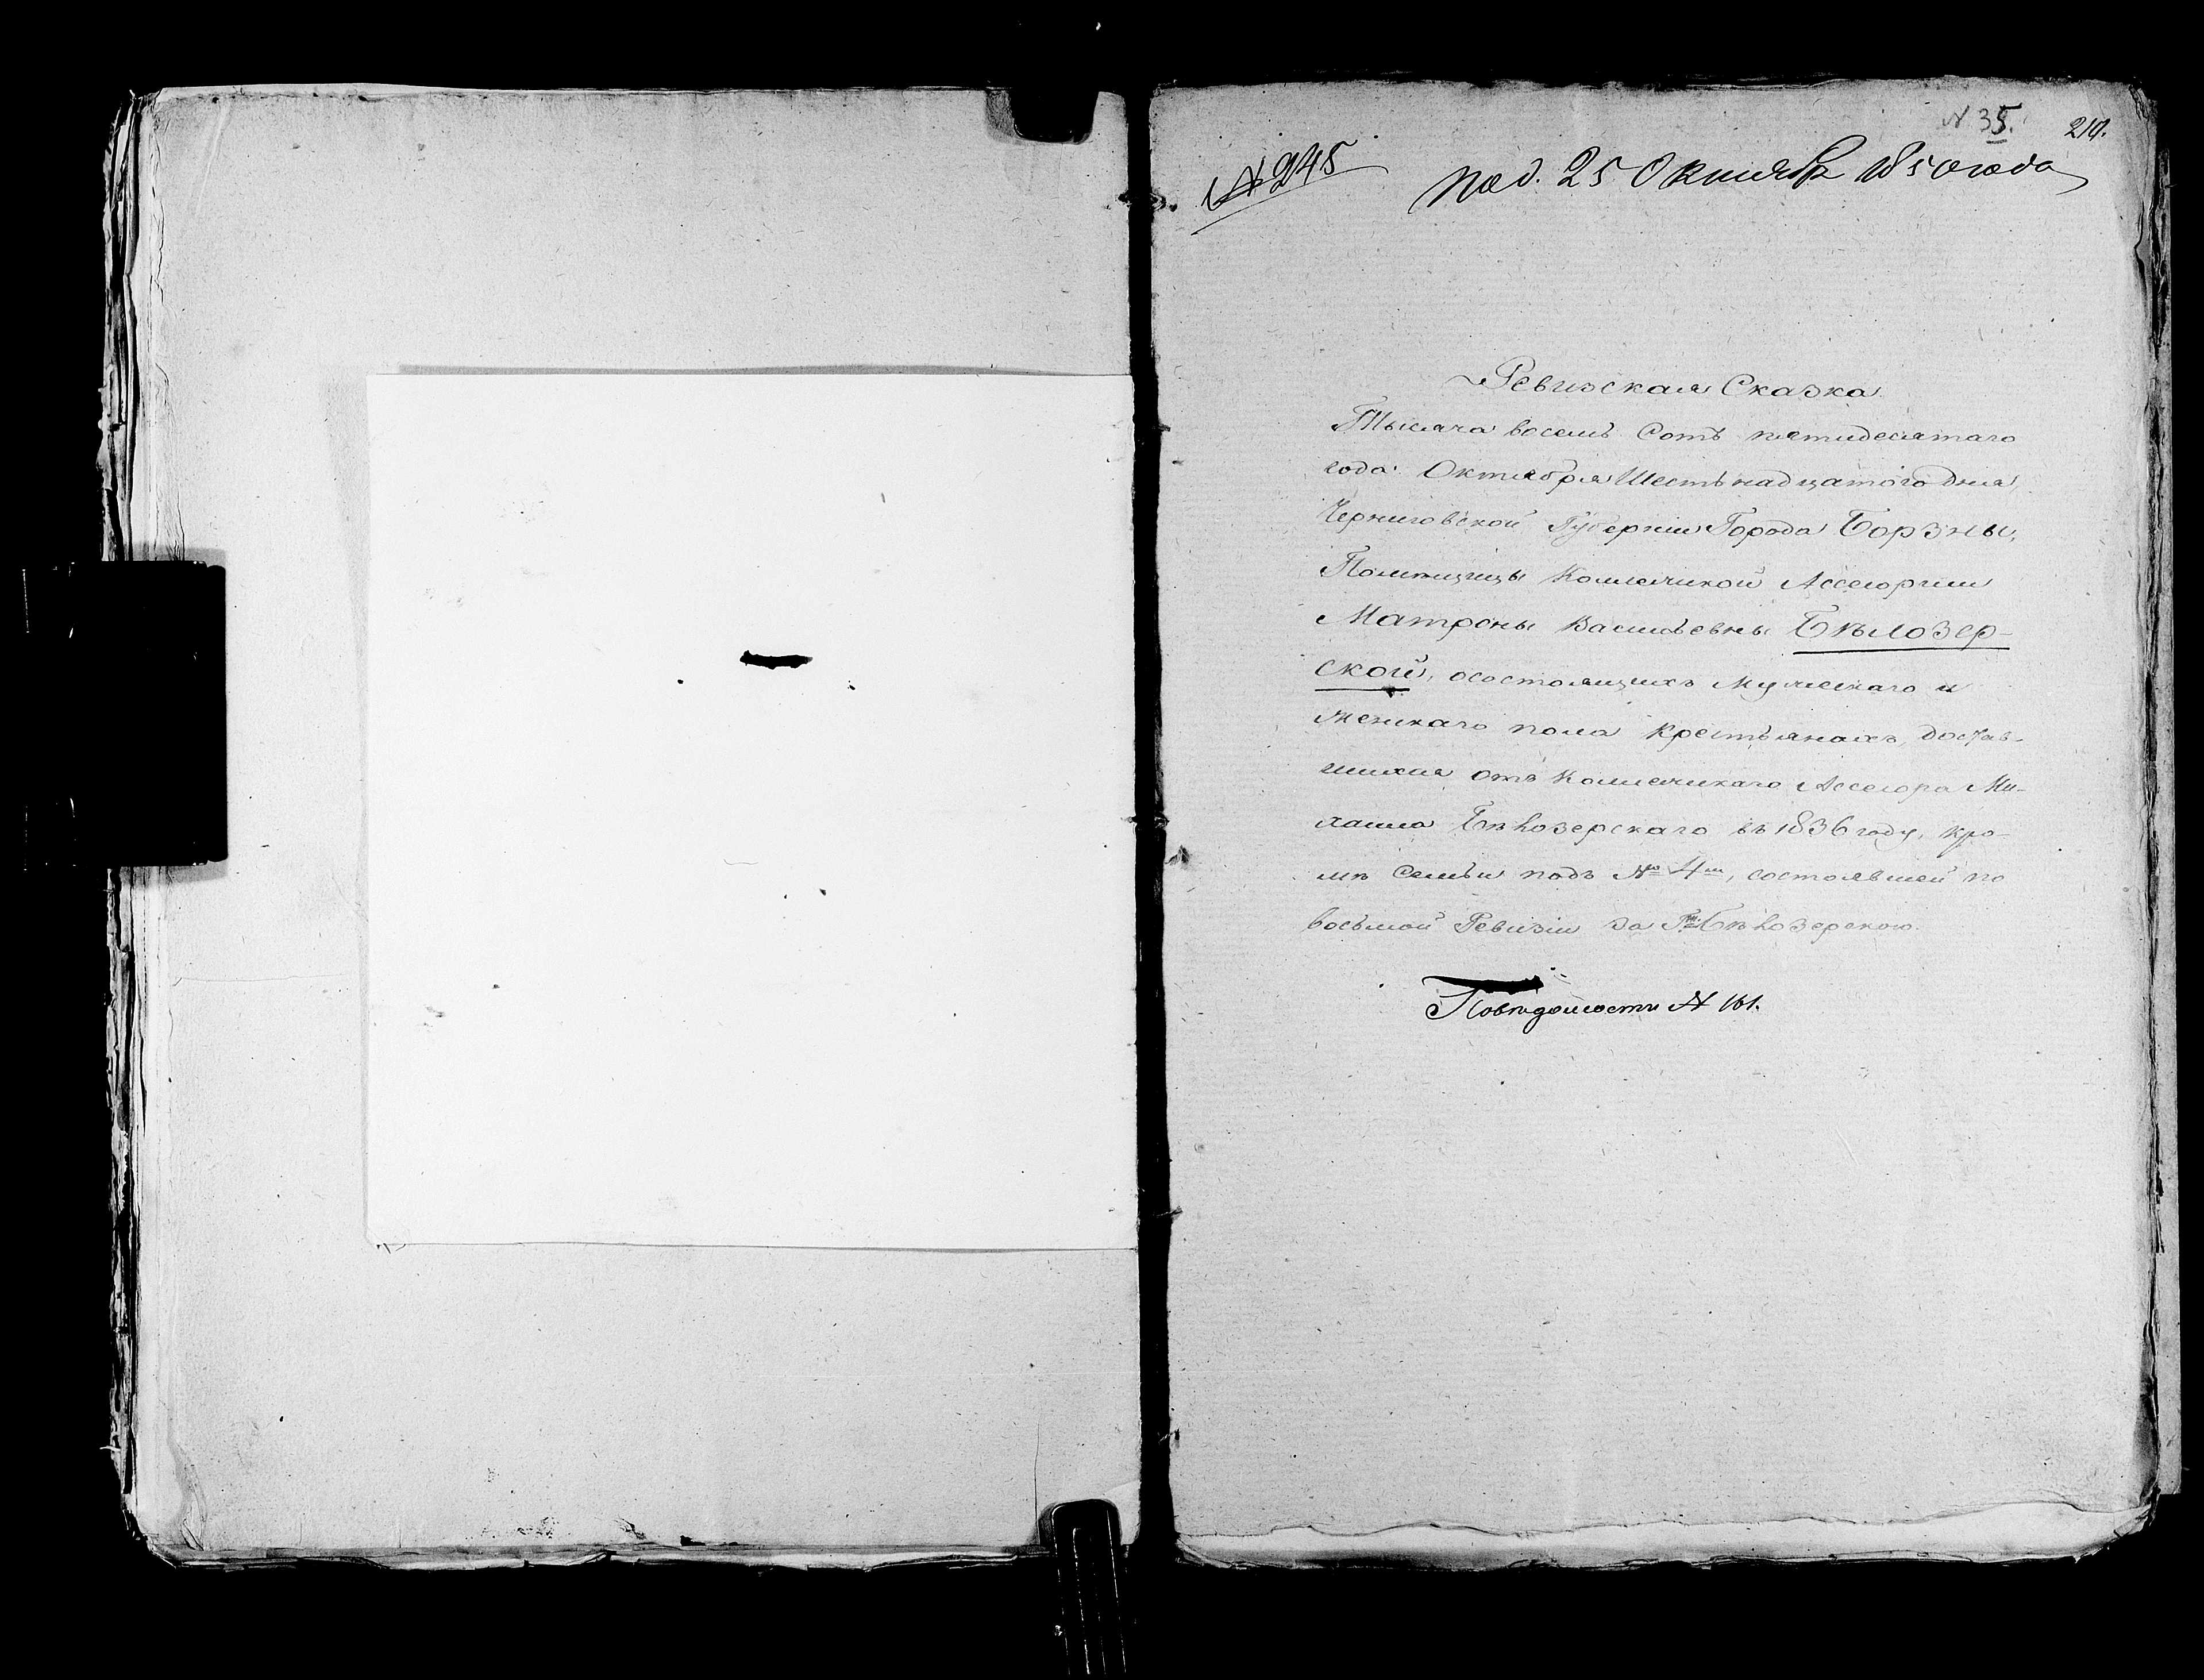 N 35.
210.
№ 245
Под. 25 Октября 1850 года
Ревизская Сказка
Тысяча восемь Сотъ пятидесятаго
года Октября Шестьнадцатого Дня,
Черниговской Губерніи Города Борзны,
Помѣщицы Коллежской Ассесорши
Матроны Васильевны Бѣлозер-
ской, о состоящихъ мужескаго и
женскаго пола крестьянахъ, достав-
шихся отъ Коллежскаго Ассесора Ми-
хаила Бѣлозерскаго въ 1836 году, кро-
мѣ Семьи подъ № 4м, состоявшей по
восьмой Ревизіи за Гж. Бѣлозерскою.
По вѣдомости № 161.